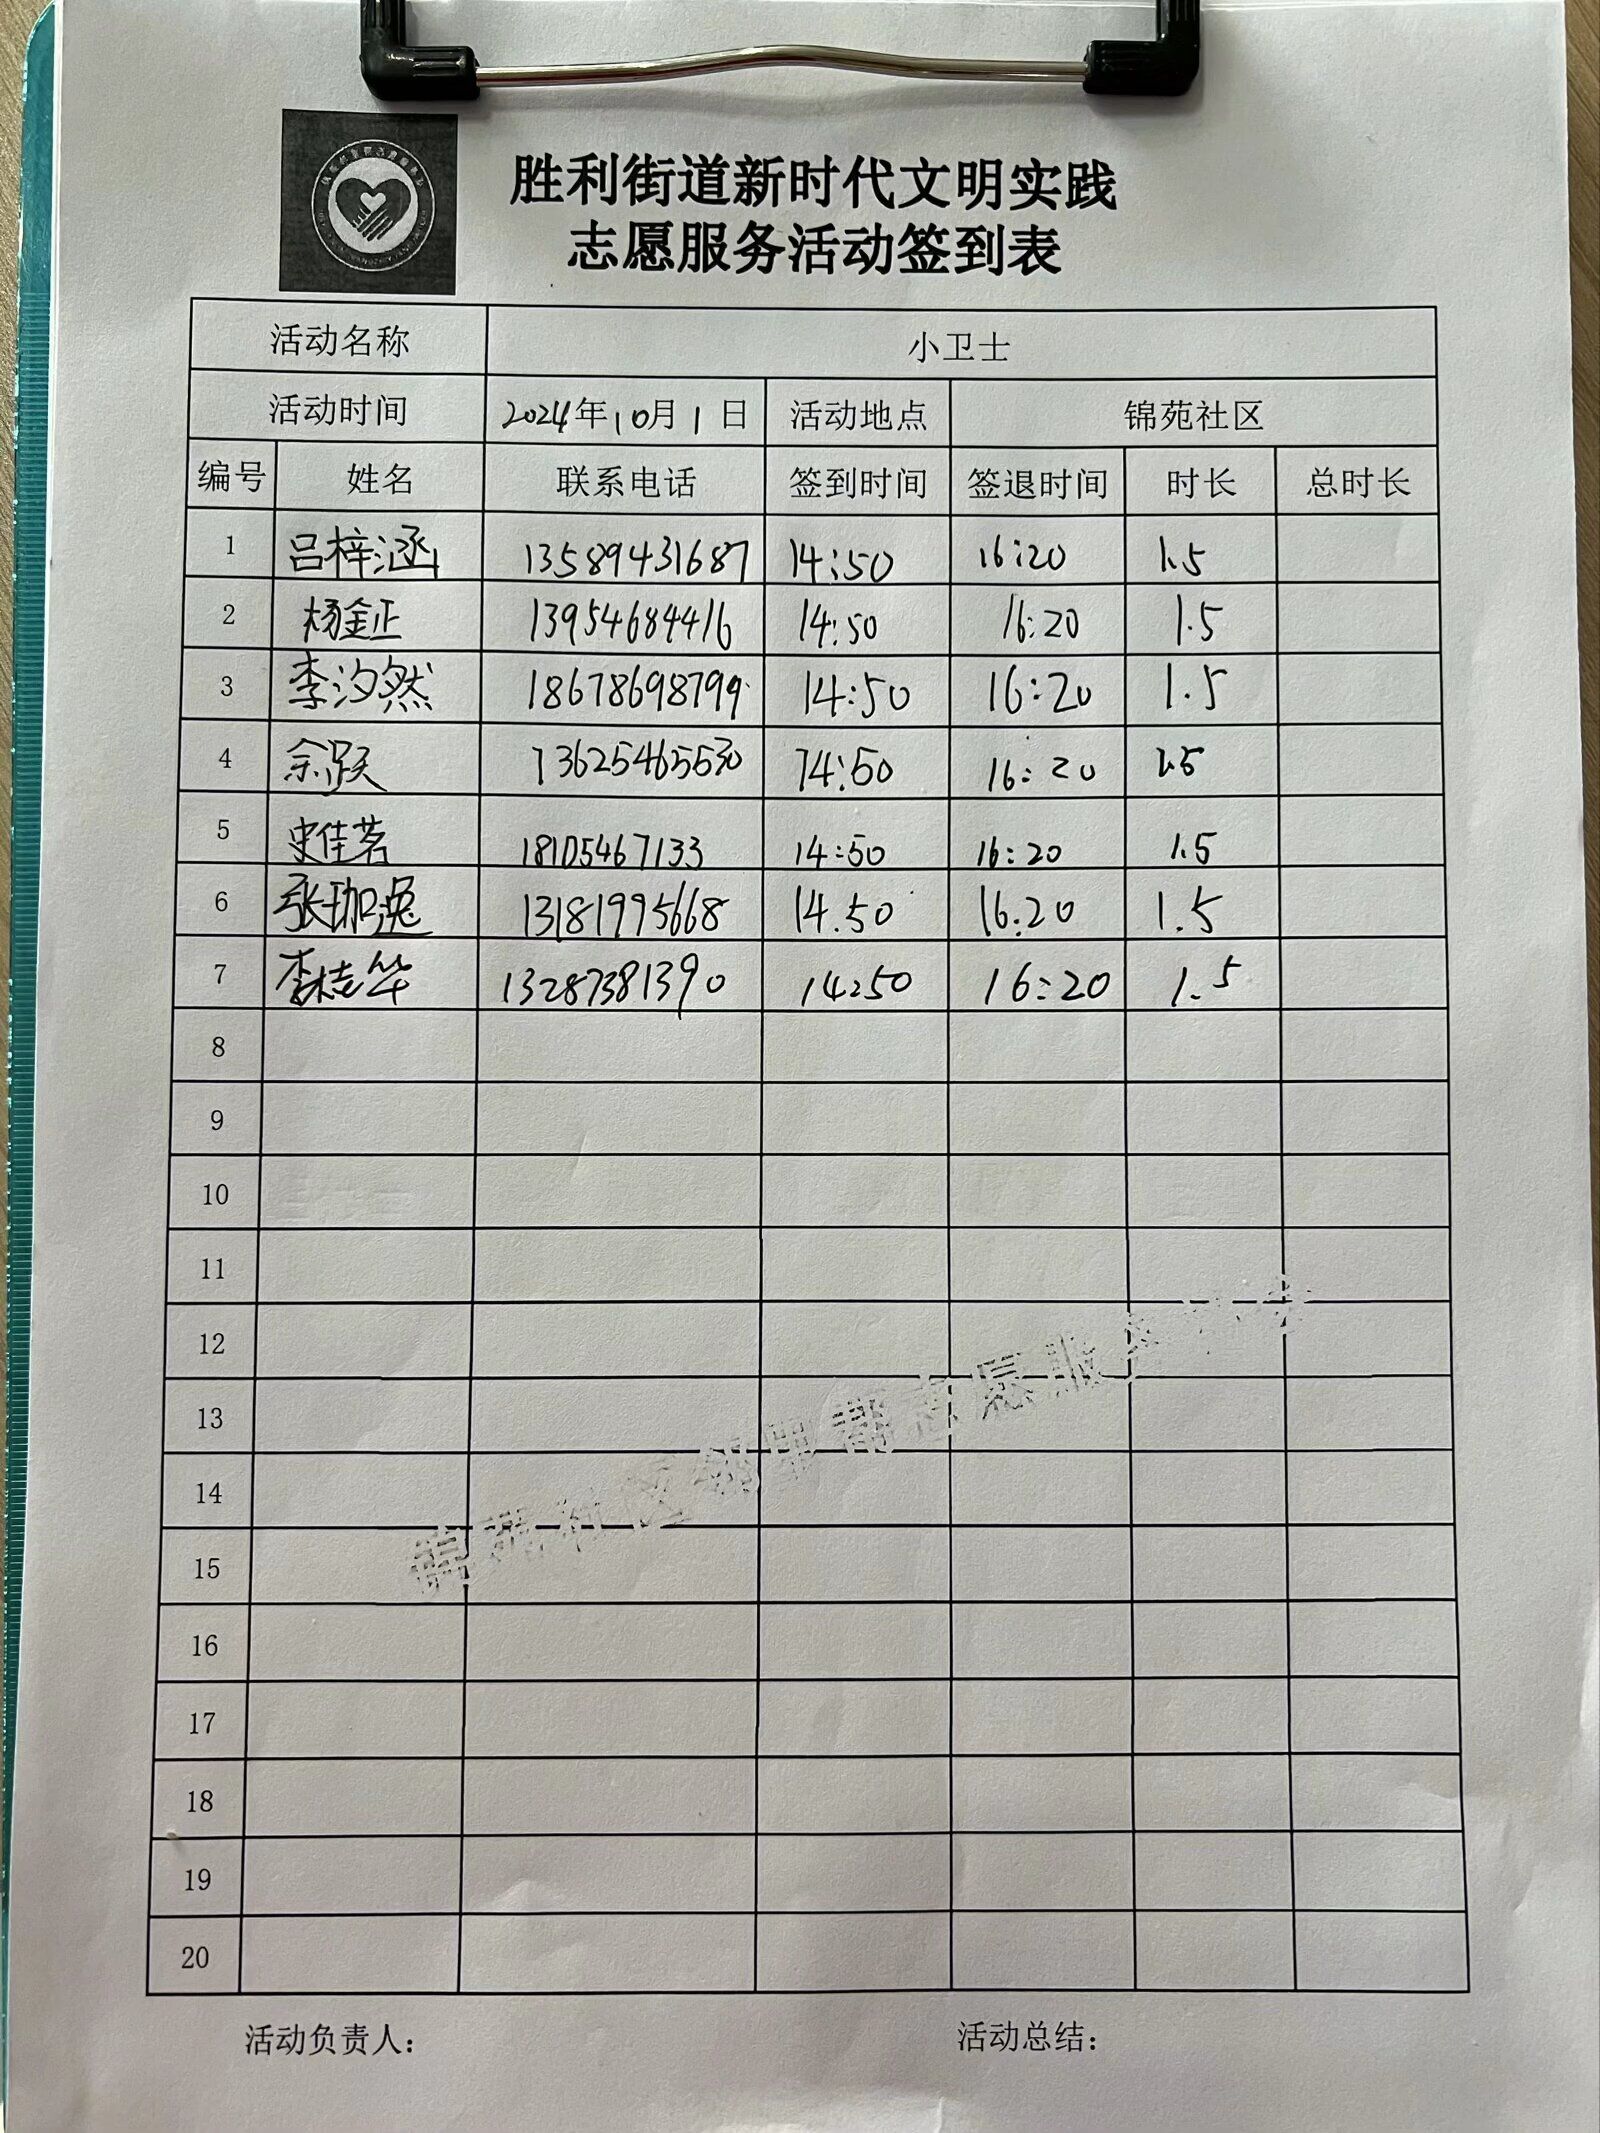 胜利街道新时代文明实践
志愿服务活动签到表
活动名称 小卫士
活动时间 2024年10月1日 活动地点 锦苑社区
编号 姓名 联系电话 签到时间 签退时间 时长 总时长
1 吕梓涵 13589431687 14:50 16:20 1.5
2 杨金正 13954684416 14:50 16:20 1.5
3 李汐然 18678698799 14:50 16:20 1.5
4 余跃 13625465530 14:50 16:20 1.5
5 史佳茗 18105467133 14:50 16:20 1.5
6 张珈逸 13181995668 14.50 16:20 1.5
7 李桂华 13287381390 14:50 16:20 1.5
8
9
10
11
12
13
14
15
16
17
18
19
20
锦苑社区邻里帮志愿服务
活动负责人：
活动总结：